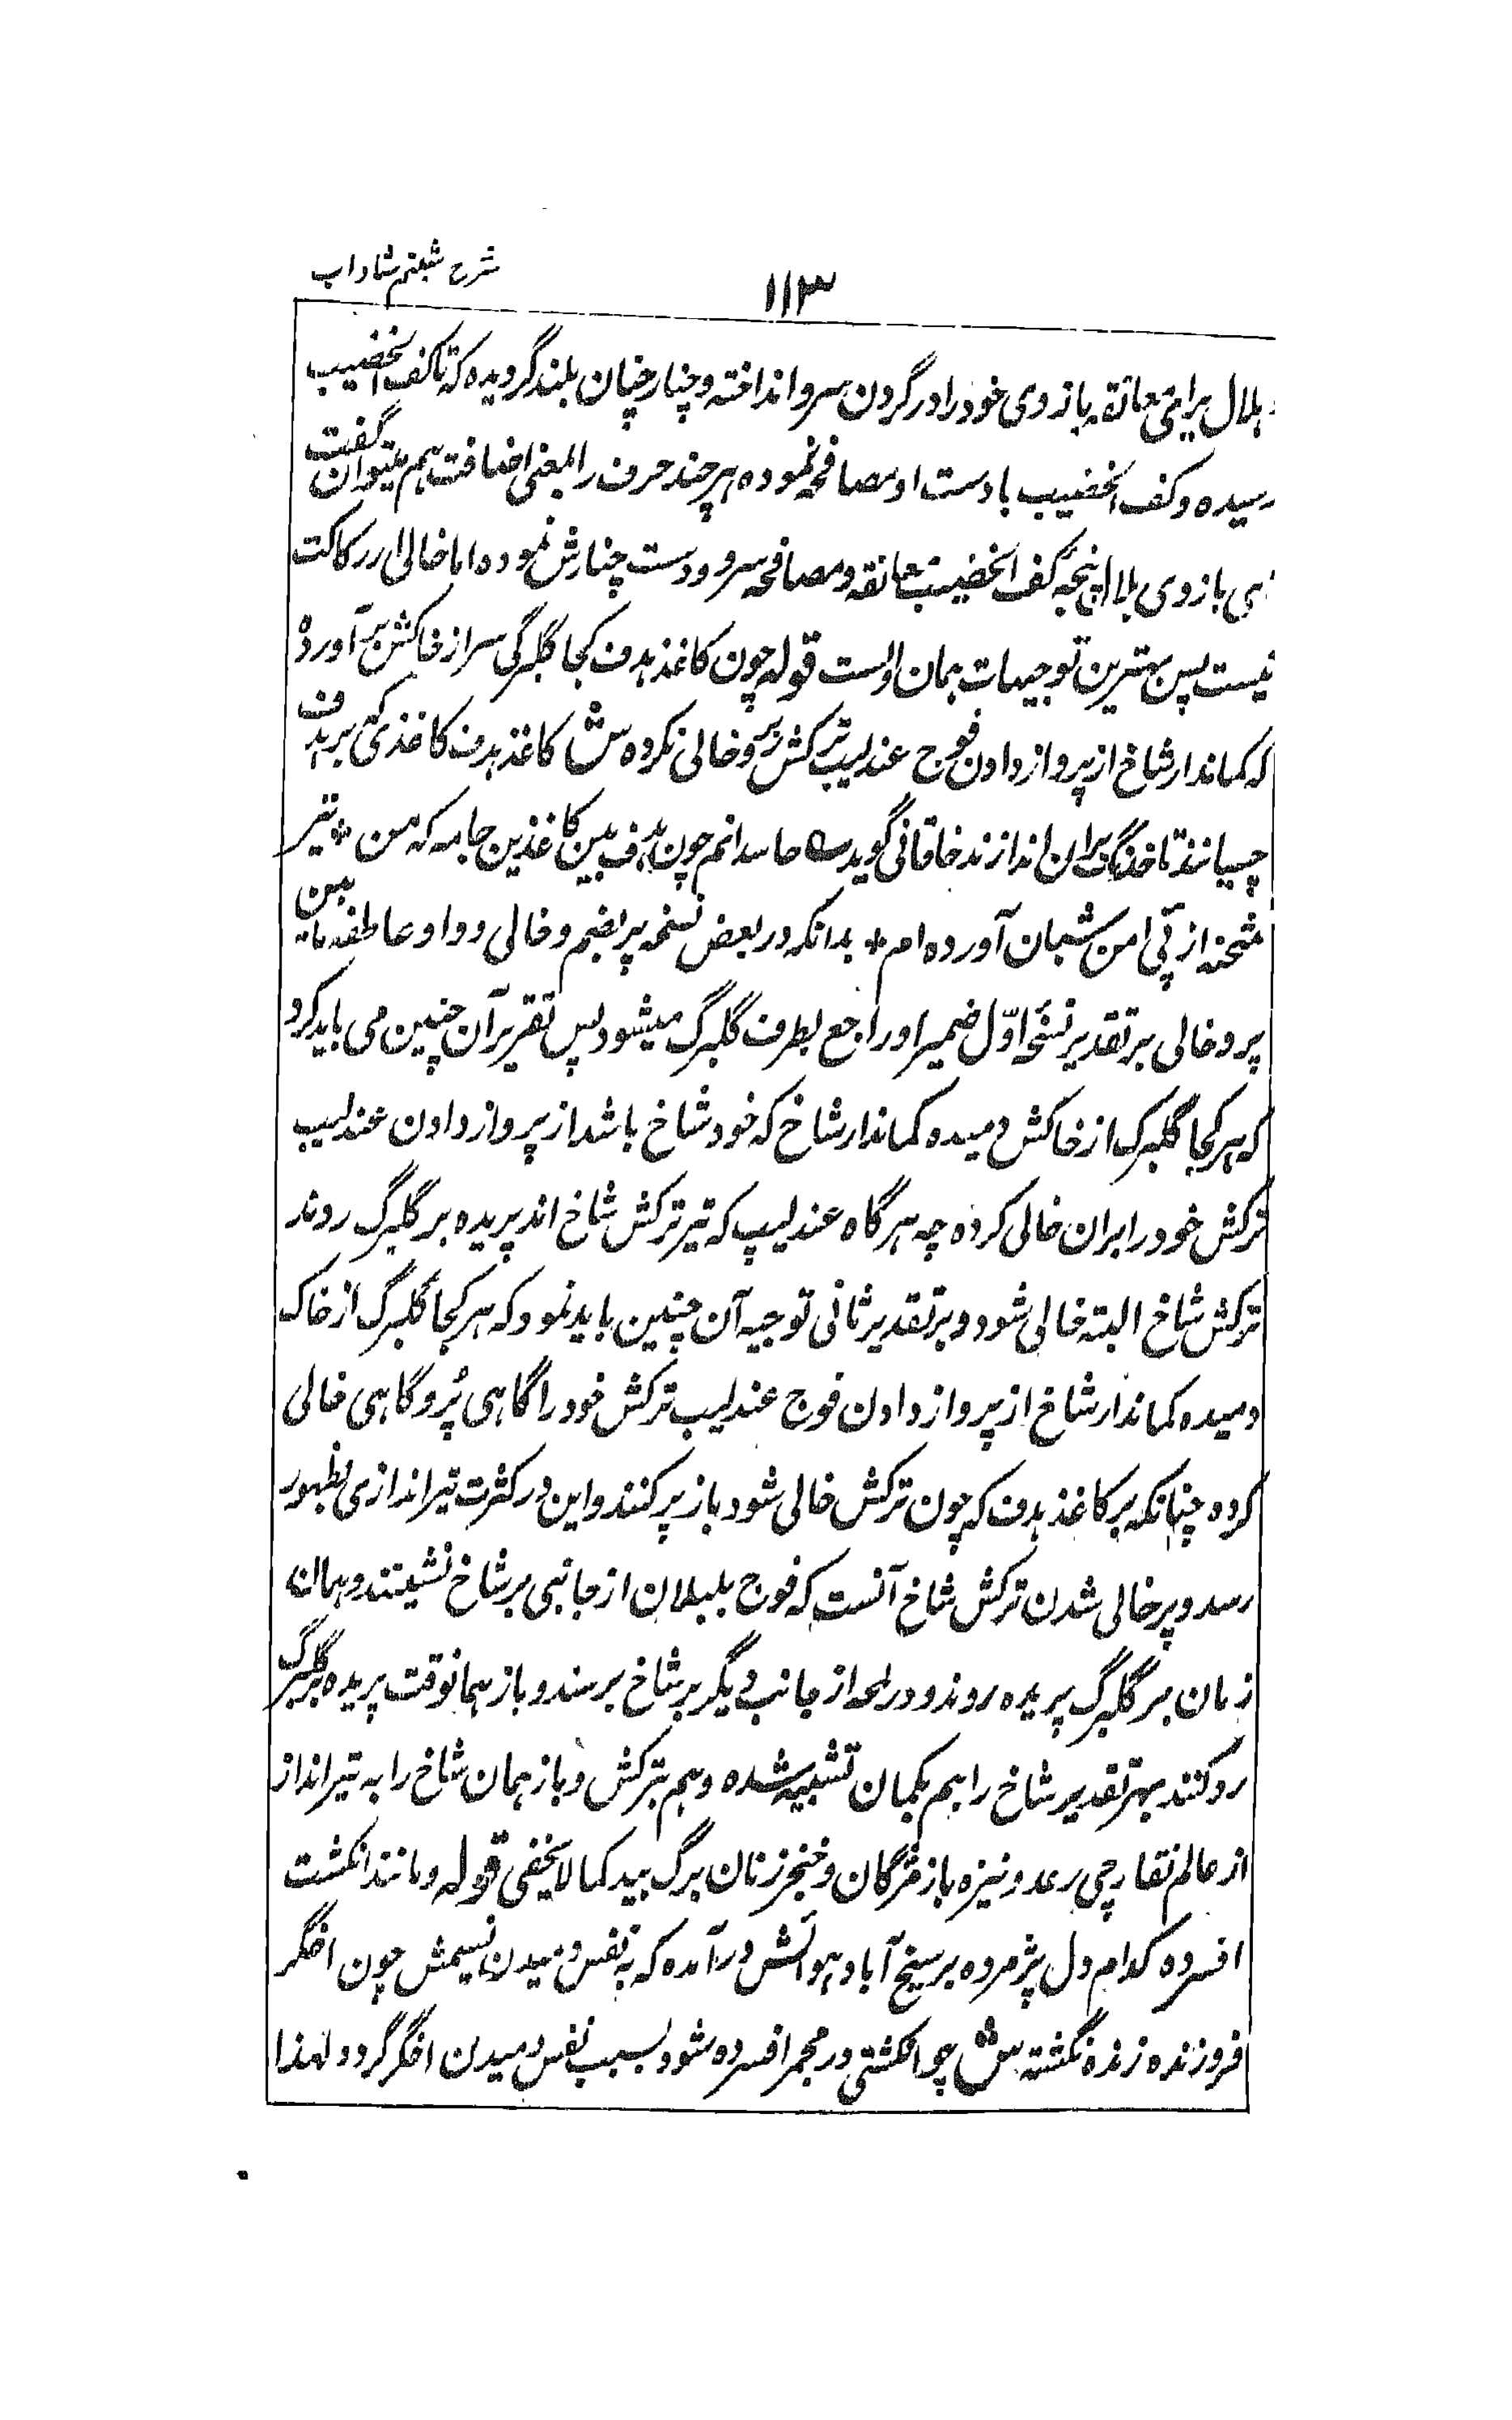 شرح شبنم شاداب
۱۱۳
هلال برای معانقه بازوی خود را در گردن سرو انداخته و چنار چنان بلند گردیده که تا کف الخضیب
رسیده و کف الخضیب با دست او مصافحه نموده هر چند حرف را بمعنی اضافت هم میتوان گفت
بازوی هلال پنجه کف الخضیب معانقه و مصافحه سرو و دست چنارش نموده اما خالی از رکاکت
نیست پس بهترین توجیهات همان اولست قوله چون کاغذ هدف کجا گلبرگی سر از خاکش بر آورده
که کماندار شاخ از پرواز دادن فوج عندلیب ترکش پر و خالی نکرده ش کاغذ هدف کاغذی که بر هدف
چسپانند تا خدنگ بران اندازند خاقانی گوید حاسدانم چون هدف بین کاغذین جامه که من * تیر
شحنه از پی امن شبان آورده ام + بدانکه در بعض نسخه پر بضم و خالی و واو عاطفه مابین
پر و خالی بر تقدیر نسخهٔ اوّل ضمیر او راجع بطرف گلبرگ میشود پس تقریر آن چنین می باید کرد
که هر کجا گلبرگ از خاکش دمیده کماندار شاخ که خود شاخ باشد از پرواز دادن عندلیب
ترکش خود را بران خالی کرده چه هرگاه عندلیب که تیر ترکش شاخ اند پریده بر گلبرگ روند
ترکش شاخ البته خالی شود و بر تقدیر ثانی توجیه آن چنین باید نمود که هر کجا گلبرگ از خاک
دمیده کماندار شاخ از پرواز دادن فوج عندلیب ترکش خود را گاهی پُر و گاهی خالی
کرده چنانکه بر کاغذ هدف که چون ترکش خالی شود باز پر کنند و این در کثرت تیر اندازی بظهور
رسد و پر خالی شدن ترکش شاخ آنست که فوج بلبلان از جانبی بر شاخ نشینند و همان
زمان بر گلبرگ پریده روند و در لمحه از جانب دیگر بر شاخ برسند و باز همانوقت پریده بر گلبرگ
رو کنند بهر تقدیر شاخ را هم بکمان تشبیه شده و هم بترکش و باز همان شاخ را به تیر انداز
از عالم نقارچی رعد و نیزه باز مژگان و خنجر زنان برگ بید کما لا یخفی قوله و مانند انگشت
افسرده کدام دل پژمرده بر سیخ آباد هوائش در آمده که به نفس دمیدن نسیمش چون اخگر
فروزنده زنده نگشته ش چو انگشتی در مجمر افسرده شود بسبب نفس دمیدن اخگر گردد لهذا